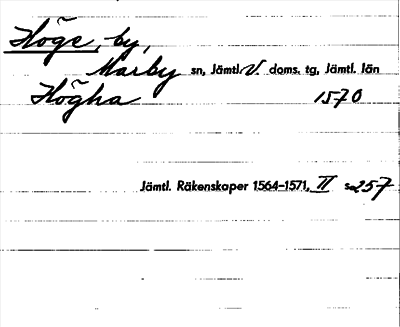 Höge, by,
Marby sn, Jämtl. V. doms. tg, Jämtl. län
Högha 1570
Jämtl. Räkenskaper 1564-1571, II s. 257